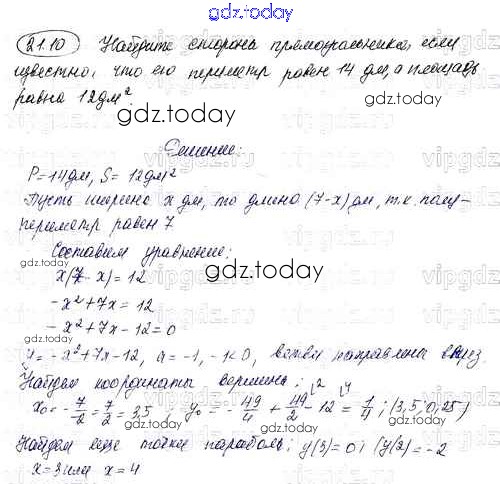 gdz.today
21.10 Найдите стороны прямоугольника, если
известно, что его периметр равен 14 дм, а площадь
равна 12дм².
gdz.today
Решение:
P=14дм, S=12дм²
Пусть ширина x дм, то длина (7-x) дм, т.к. полу-
периметр равен 7
gdz.today
Составим уравнение:
x(7-x)=12
gdz.today
-x²+7x=12
-x²+7x-12=0
gdz.today
y=-x²+7x-12, a=-1, -1<0, ветви направлены вниз.
Найдем координаты вершины:
x₀=-7/-2=7/2=3,5; y₀=-49/4+49/2-12=1/4; (3,5;0,25)
Найдем еще точки параболы: y(3)=0; y(2)=-2
x=3 или x=4
gdz.today